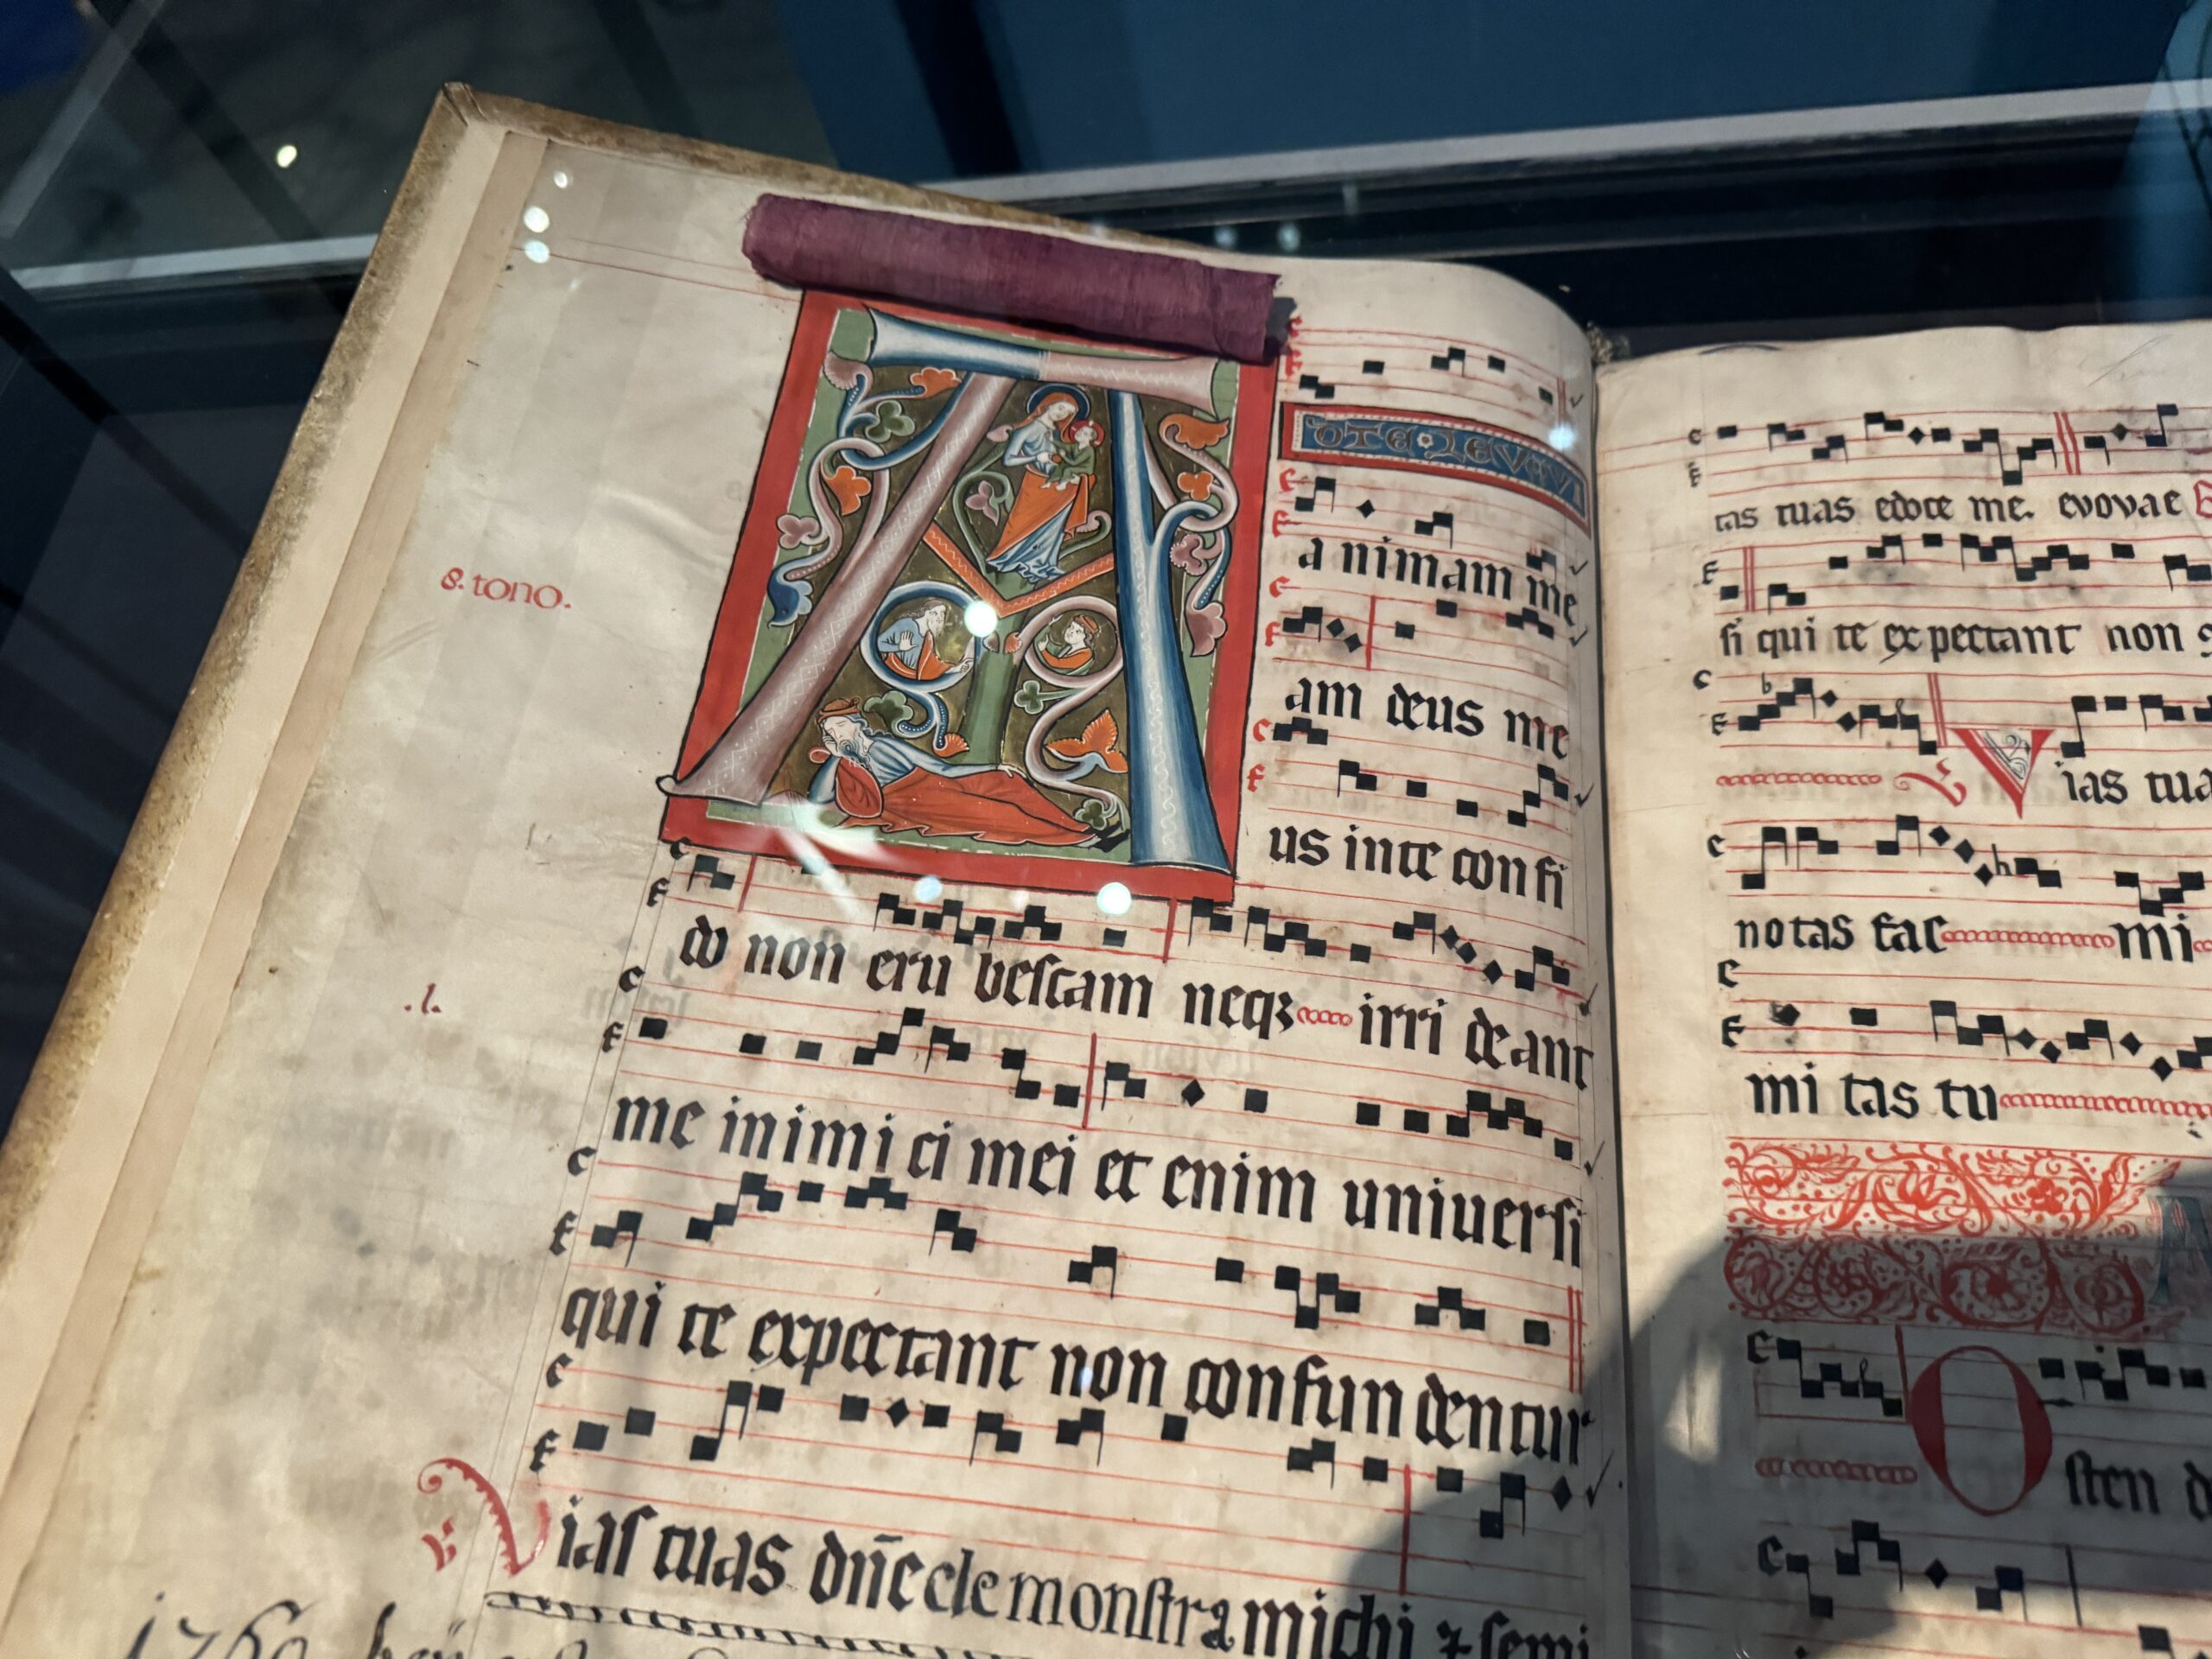 A
D TE LEVAVI
a nimam me
8. tono.
am deus me
us in te confi
do non eru bescam neqꝫ irri deant
.l.
me inimi ci mei et enim uniuersi
qui te expectant non confun dentur
V Vias tuas dn̄e de monstra michi ⁊ semi
1760
tas tuas edoce me. evovae
si qui te ex pectant non
V Vias tua
notas fac mi
mi tas tu
Osten d